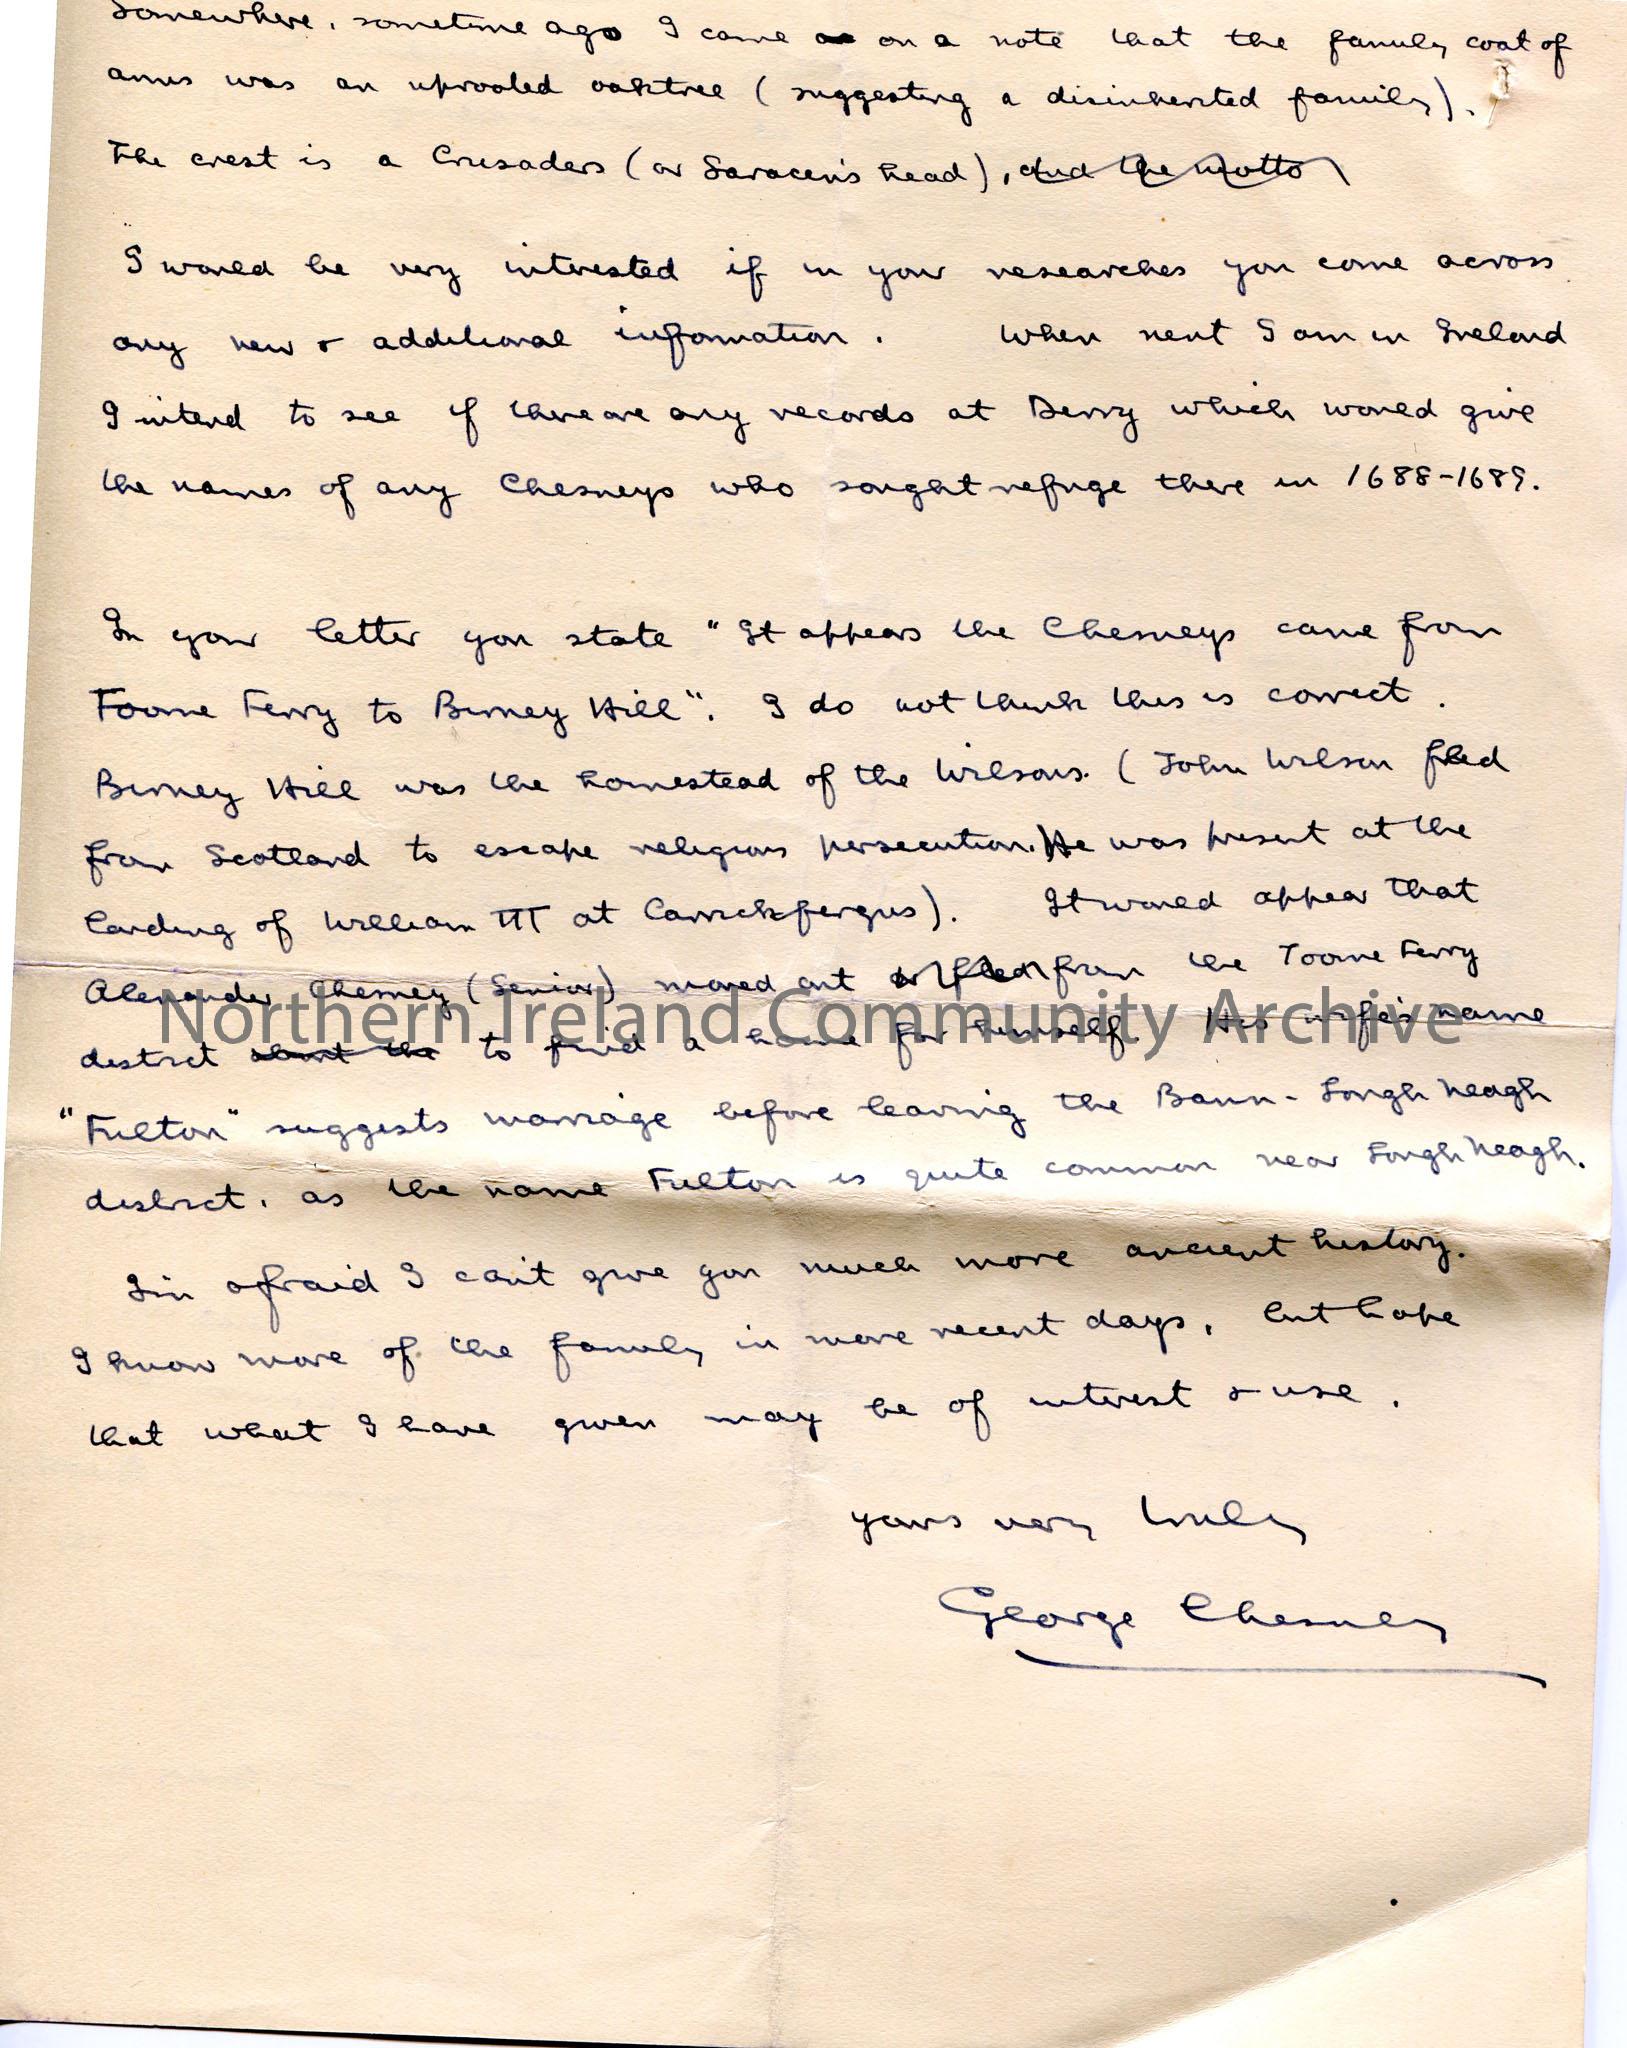 Somewhere, sometime ago I came on a note that the family coat of
arms was an uprooted oaktree (suggesting a disinherited family).
The crest is a Crusaders (or Saracen's head), and the motto
I would be very interested if in your researches you come across
any new & additional information. When next I am in Ireland
I intend to see if there are any records at Derry which would give
the names of any Chesneys who sought refuge there in 1688-1689.
In your letter you state "It appears the Chesneys came from
Toome Ferry to Birney Hill". I do not think this is correct.
Birney Hill was the homestead of the Wilsons. (John Wilson fled
from Scotland to escape religious persecution. He was present at the
landing of William III at Carrickfergus). It would appear that
Alexander Chesney (Senior) moved out or fled from the Toome Ferry
Northern Ireland Community Archive
district about the to find a home for himself. His wife's name
"Fulton" suggests marriage before leaving the Bann-Lough Neagh
district, as the name Fulton is quite common near Lough Neagh.
I'm afraid I can't give you much more ancient history.
I know more of the family in more recent days, but hope
that what I have given may be of interest & use.
yours very truly
George Chesney